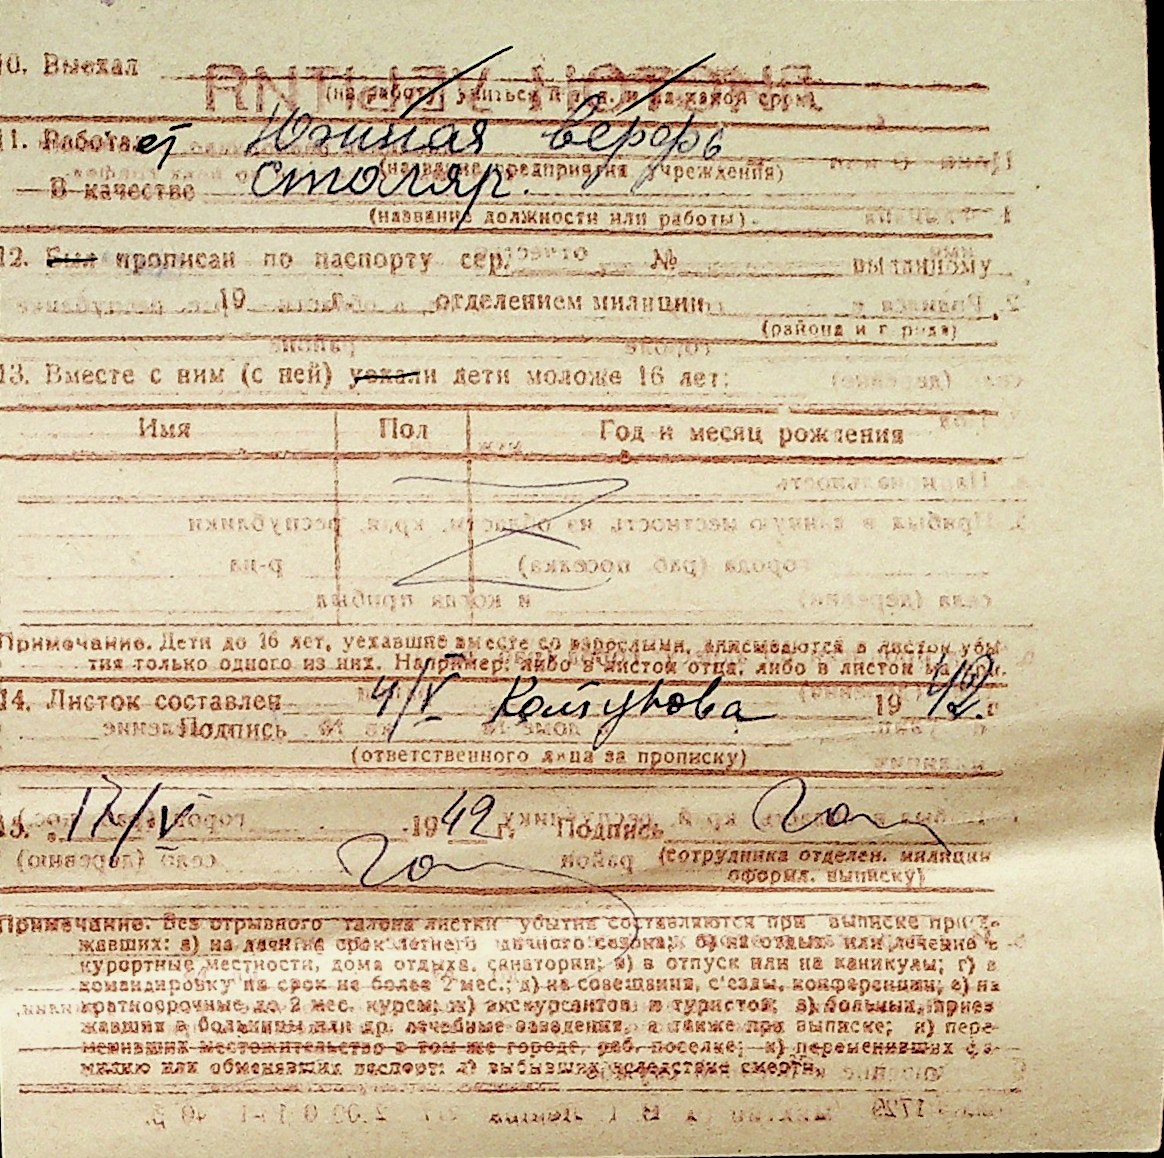 10. Выехал
(на работу, учиться и т. д. и на какой срок)
11. Работает Южная верфь
(название предприятия учреждения)
В качестве столяр.
(название должности или работы)
12. Был прописан по паспорту сер. № выданному
19 г. отделением милиции
(района и города)
13. Вместе с ним (с ней) уехали дети моложе 16 лет:
Имя Пол Год и месяц рождения
Z
Примечание. Дети до 16 лет, уехавшие вместе со взрослыми, вписываются в листок убы-
тия только одного из них. Например: либо в листок отца, либо в листок матери.
14. Листок составлен 4/V 1942 г.
Подпись
(ответственного лица за прописку)
15. 17/V 1942 г. Подпись
(сотрудника отделен. милиции
оформл. выписку)
Примечание. Без отрывного талона листки убытия составляются при выписке приез-
жавших: а) на дачи на срок летнего дачного сезона; б) на отдых или лечение в
курортные местности, дома отдыха, санатории; в) в отпуск или на каникулы; г) в
командировку на срок не более 2 мес.; д) на совещания, с'езды, конференции; е) на
краткосрочные до 2 мес. курсы; ж) экскурсантов и туристов; з) больных, приез-
жавших в больницы или др. лечебные заведения, а также при выписке; и) пере-
менивших местожительство в том же городе, раб. поселке; к) переменивших фа-
милию или обменявших паспорт; л) выбывших вследствие смерти.